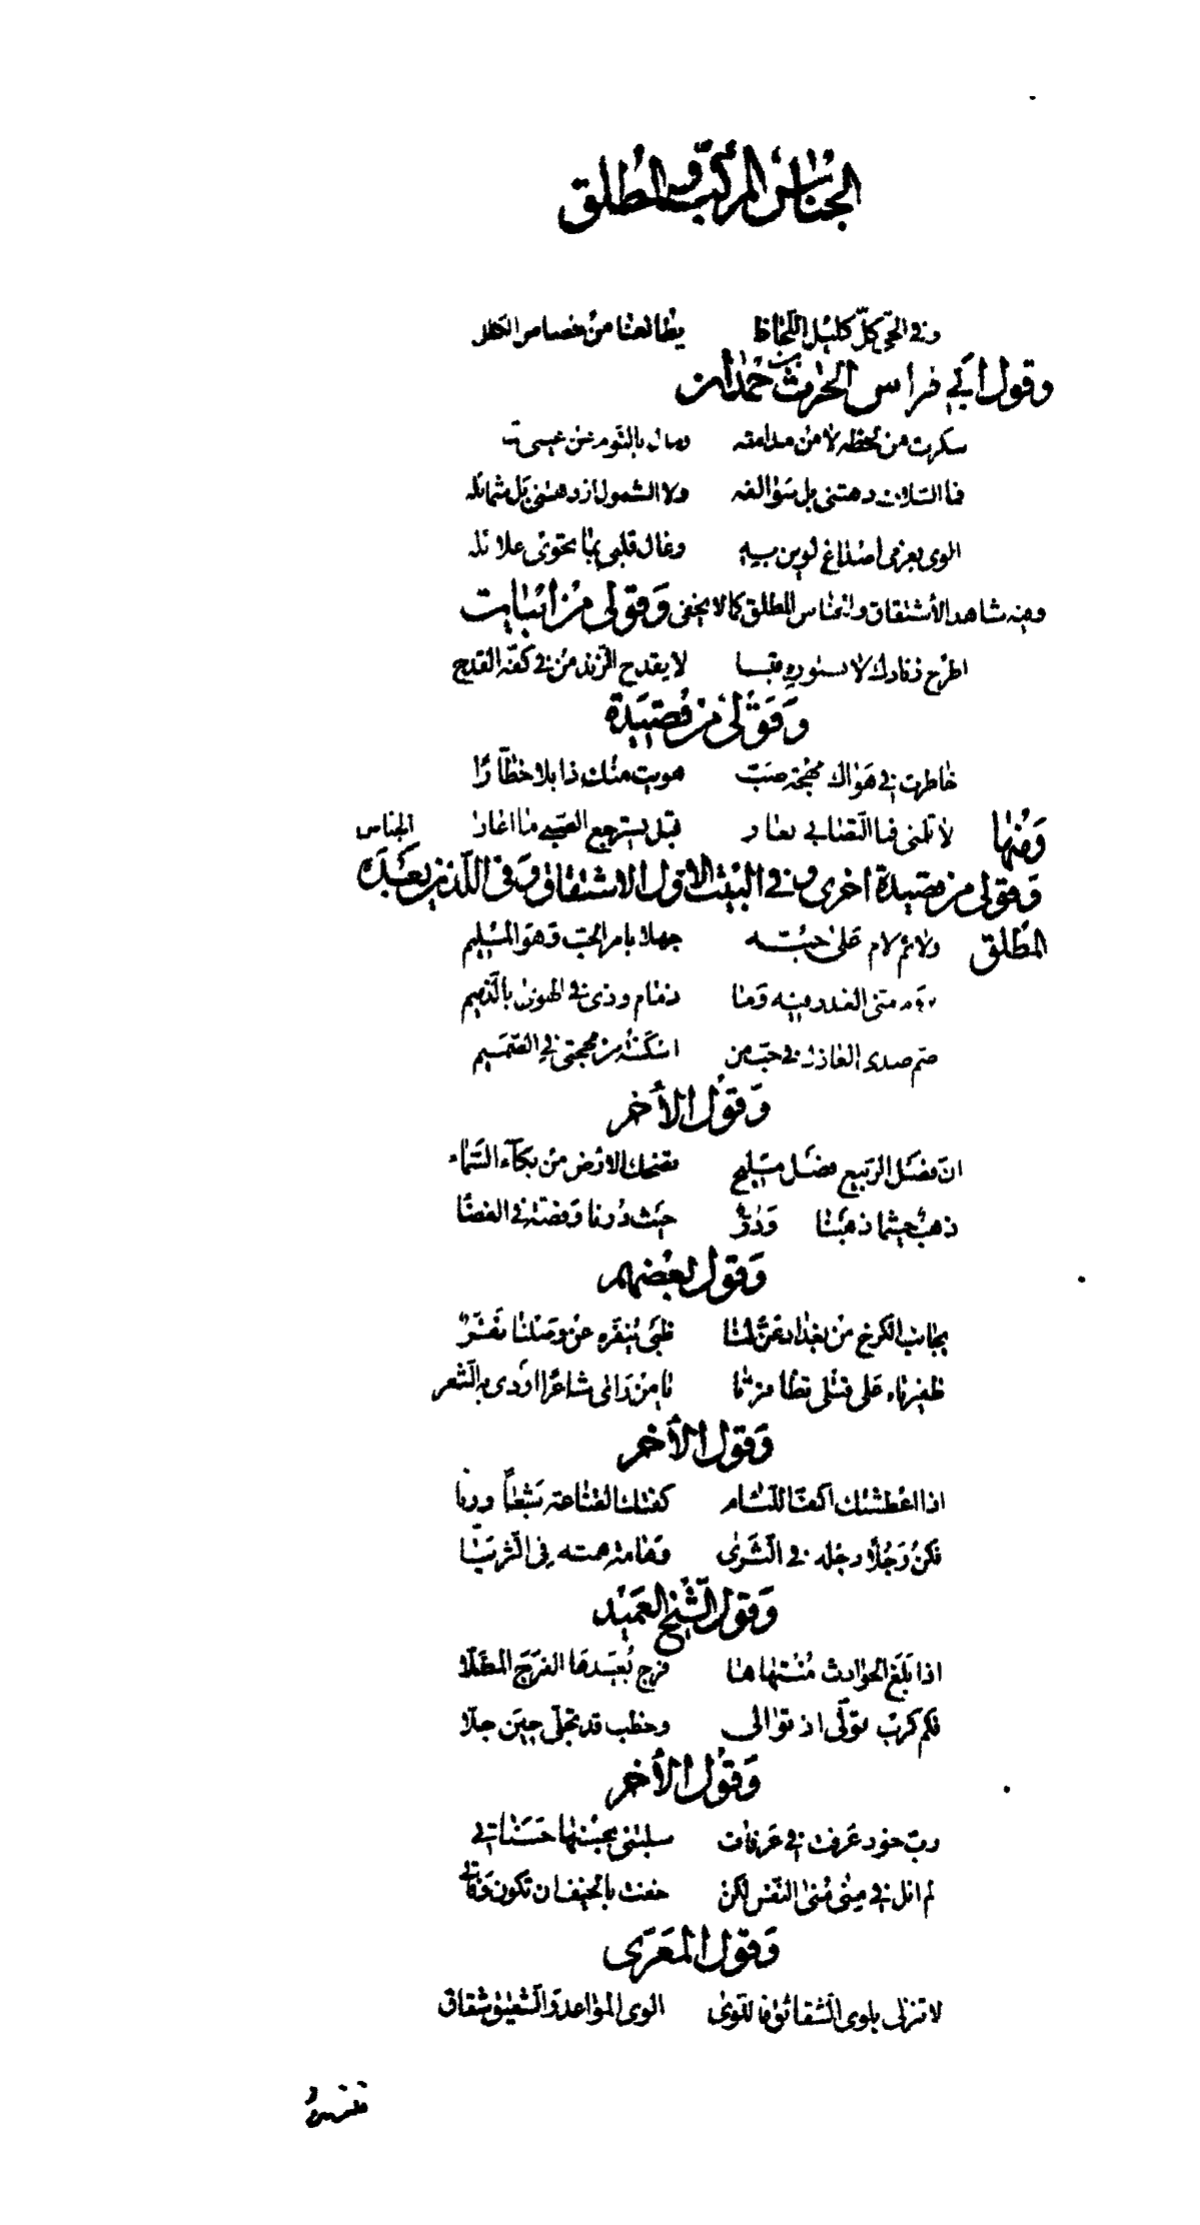 الجناس المركب والمطلق
وفى الحىّ كلّ كليل اللّحاظ يطالعنا من خصاص الكلل
وقول ابى فراس الحرث بن حمدان
سكرت من لحظه لا من مدامته ومال بالنّوم عن عينى
فما السّلاف دهتنى بل سوالفه ولا الشمول ازدهتنى بل شمائله
الوى بعزمى اصداغ لوين وغال قلبى بما تحوى غلائله
وفيه شاهد الأشتقاق والجناس المطلق كما لا يخفى وقولى من ابيات
اطرح زنادك لا لا يقدح الزند من فى كفّه القدح
وقولى من قصيدة
خاطرت فى هواك مهجة صبّ هويت منك ذابلا خطّارًا
ومنها لا تلمنى فما التّصابى بعار قبل يسترجع الصبى ما اعارا الجناس
وقولى من قصيدة اخرى وفى البيت الاول الاشتقاق وفى اللذين بعده
المطلق ولائم لام على حبّه جهلا بامر الحبّ وهو المليم
متنى الغدر وما ذمام ودّى فى الهوى بالذّميم
صم صدى العاذل فى حبّ من اسكنته من مهجتى فى الصّميم
وقول الأخر
انّ فصل الربيع فصل مليح تضحك الارض من بكآء السّماء
ذهب حيثما ذهبنا ودرّ حيث درنا وفضّة فى الفضا
وقول بعضهم
بجانب الكرخ من بغداد عنّ لنا ظبى ينفّره عن وصلنا نفر
ظفيرتاه على قتلى تظافرتا يا من رأى شاعرًا اودى به الشعر
وقول الأخر
اذا اعطشتك اكفّ اللئام كفتك القناعة شبعًا وريا
فكن رجلًا رجله فى الثّرى وهامة همته فى الثريّا
وقول الشيخ العميد
اذا بلغ الحوادث منتهاها فرج بعيدها الفرج المطلّا
فكم كرب تولّى اذ توالى وخطب قد تجلّى حين جلا
وقول الأخر
ربّ خود عرفت فى عرفات سلبتنى بحسنها حسناتى
لم انل فى منى منى النّفس لكن خفت بالخيف ان تكون وفاتى
وقول المعرى
لا تنزلى بلوى الشقائق فاللّوى الوى المواعد والشقيق شقاق